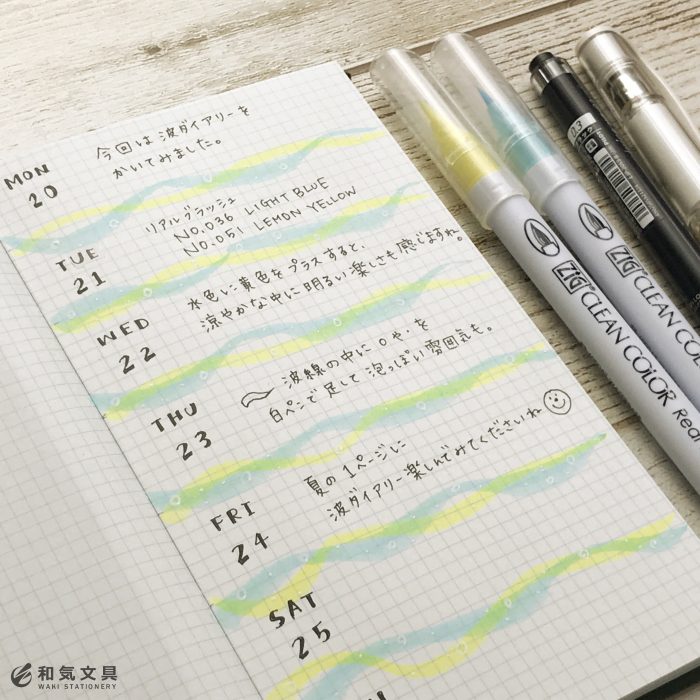 MON
20
今回は波ダイアリーを
かいてみました。
TUE
21
リアルブラッシュ
NO.036 LIGHT BLUE
NO.051 LEMON YELLOW
WED
22
水色に黄色をプラスすると、
涼やかな中に明るい楽しさも感じますね。
THU
23
波線の中に○や・を
白ペンで足して泡っぽい雰囲気も。
FRI
24
夏の1ページに
波ダイアリー楽しんでみてくださいね
SAT
25
ZIG CLEAN COLOR Real
ZIG CLEAN COLOR
0.3
和気文具
WAKI STATIONERY